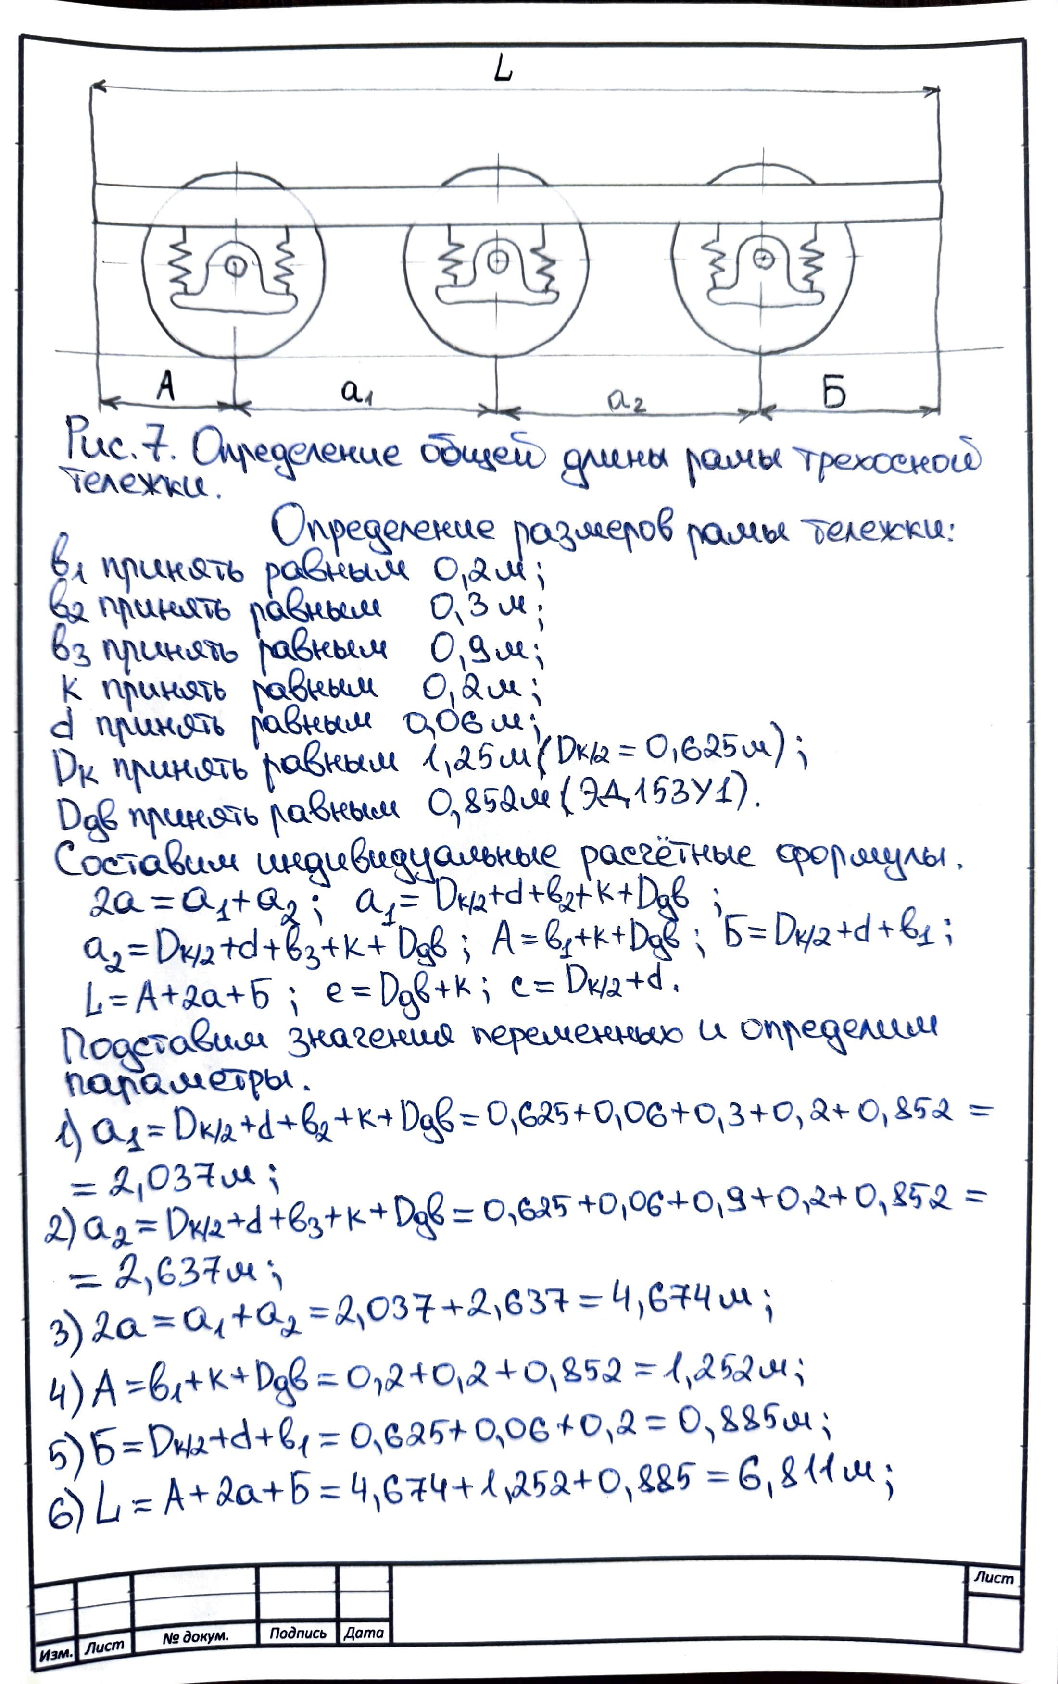 L
А a₁ a₂ Б
Рис. 7. Определение общей длины рамы трехосной
тележки.
Определение размеров рамы тележки:
в₁ принять равным 0,2м;
в₂ принять равным 0,3м;
в₃ принять равным 0,9м;
к принять равным 0,2м;
d принять равным 0,06м;
Dк принять равным 1,25м (Dк/2 = 0,625м);
Dдв принять равным 0,852м (ЭД153У1).
Составим индивидуальные расчётные формулы.
2a = a₁+a₂; a₁= Dк/2+d+в₂+к+Dдв;
a₂= Dк/2+d+в₃+к+Dдв; А=в₁+к+Dдв; Б=Dк/2+d+в₁;
L=А+2a+Б; e=Dдв+к; c= Dк/2+d.
Подставим значения переменных и определим
параметры.
1) a₁= Dк/2+d+в₂+к+Dдв=0,625+0,06+0,3+0,2+0,852 =
= 2,037м;
2) a₂= Dк/2+d+в₃+к+Dдв=0,625+0,06+0,9+0,2+0,852 =
= 2,637м;
3) 2a = a₁+a₂ = 2,037+2,637= 4,674м;
4) А=в₁+к+Dдв=0,2+0,2+0,852 = 1,252м;
5) Б=Dк/2+d+в₁=0,625+0,06+0,2= 0,885м;
6) L= А+2a+Б=4,674+1,252+0,885 = 6,811м;
Лист
Изм. Лист № докум. Подпись Дата